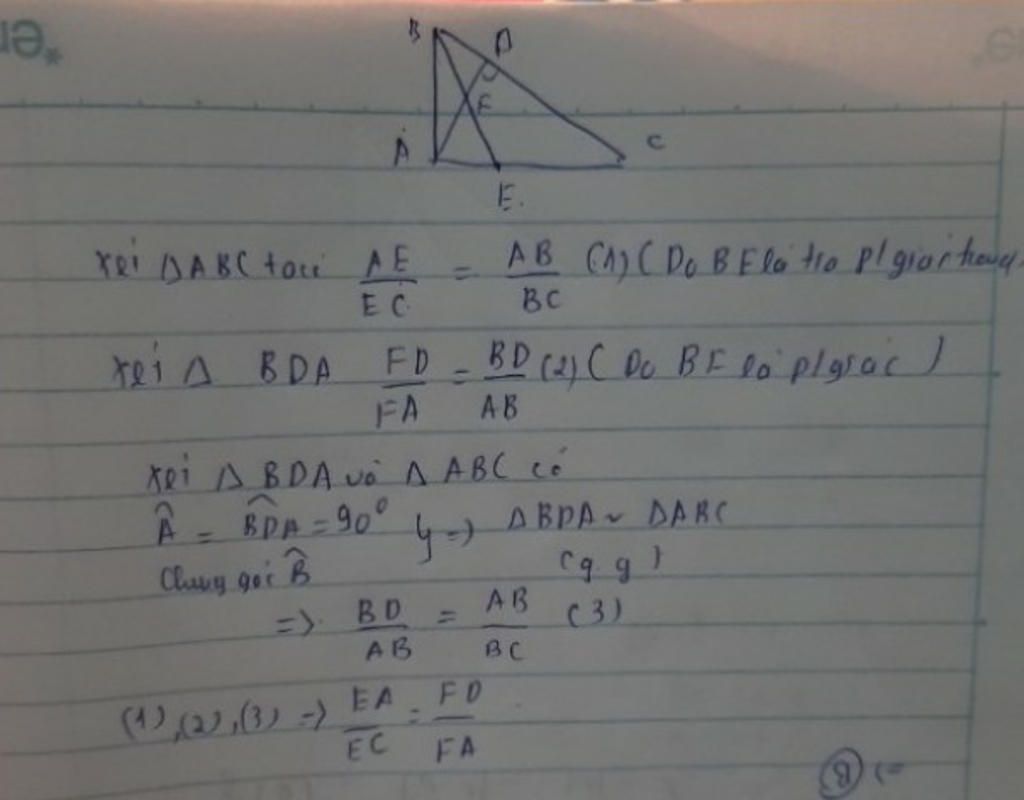 B
D
F
A
C
E.
Xét ΔABC ta có AE/EC = AB/BC (1) ( Do BE là tia p/giác
Xét Δ BDA FD/FA = BD/AB (2) ( Do BF là p/giác )
Xét Δ BDA và Δ ABC có
Â = BDA = 90° } => ΔBDA ~ ΔABC
Chung góc B̂ (g.g)
=> BD/AB = AB/BC (3)
(1), (2), (3) => EA/EC = FD/FA